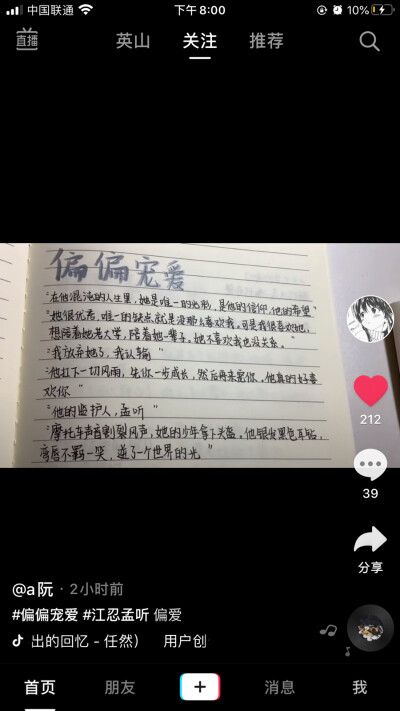 中国联通
下午8:00
10%
直播
英山
关注
推荐
偏偏宠爱
"在他混沌的人生里，她是唯一的光彩，是他的信仰，他的希望"
"她很优秀，唯一的缺点就是没那么喜欢我。可是我很喜欢她，
想陪着她老大学，陪着她一辈子。她不喜欢我也没关系。"
"我放弃她了，我认输"
"他扛下一切风雨，先你一步成长，然后再来宠你。他真的好喜
欢你"
"他的监护人，孟听"
"摩托车声音割裂风声，她的少年拿下头盔。他银发黑色耳钻，
弯唇不羁一笑，逆了一个世界的光"
212
39
分享
@a阮 · 2小时前
#偏偏宠爱 #江忍孟听 偏爱
出的回忆 - 任然） 用户创
首页
朋友
消息
我